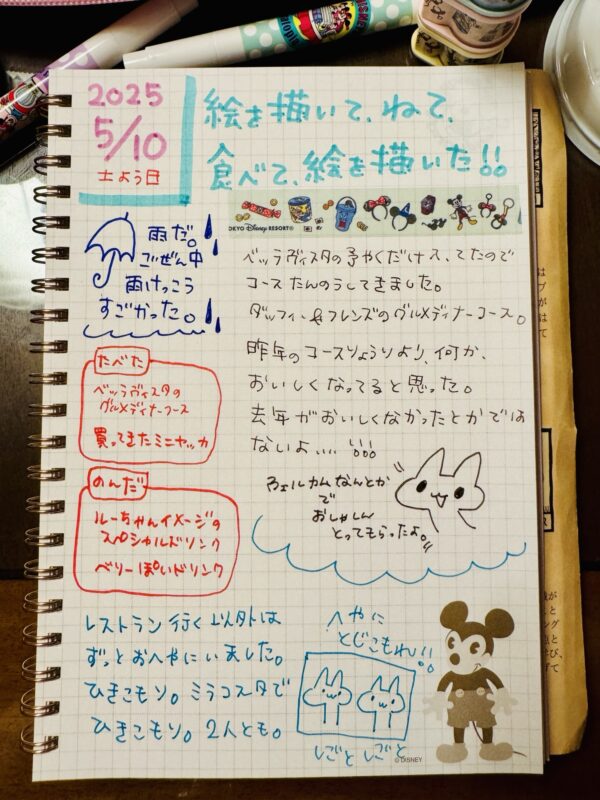 2025
5/10
土よう日
絵を描いて、ねて、
食べて、絵を描いた!!
TOKYO Disney RESORT®
雨だ。
ごぜん中
雨けっこう
すごかった。
ベッラヴィスタの予やくだけ入ってたので
コースたんのうしてきました。
ダッフィー&フレンズのグルメディナーコース。
昨年のコースりょうりより、何か、
おいしくなってると思った。
去年がおいしくなかったとかでは
ないよ....
たべた
ベッラヴィスタの
グルメディナーコース
買ってきたミニヤッカ
のんだ
ルーちゃんイメージの
スペシャルドリンク
ベリーぽいドリンク
ウェルカムなんとか
で
おしゃしん
とってもらったよ。
レストラン行く以外は
ずっとおへやにいました。
ひきこもり。ミラコスタで
ひきこもり。2人とも。
へやに
とじこもれ!!
しごとしごと
© DISNEY